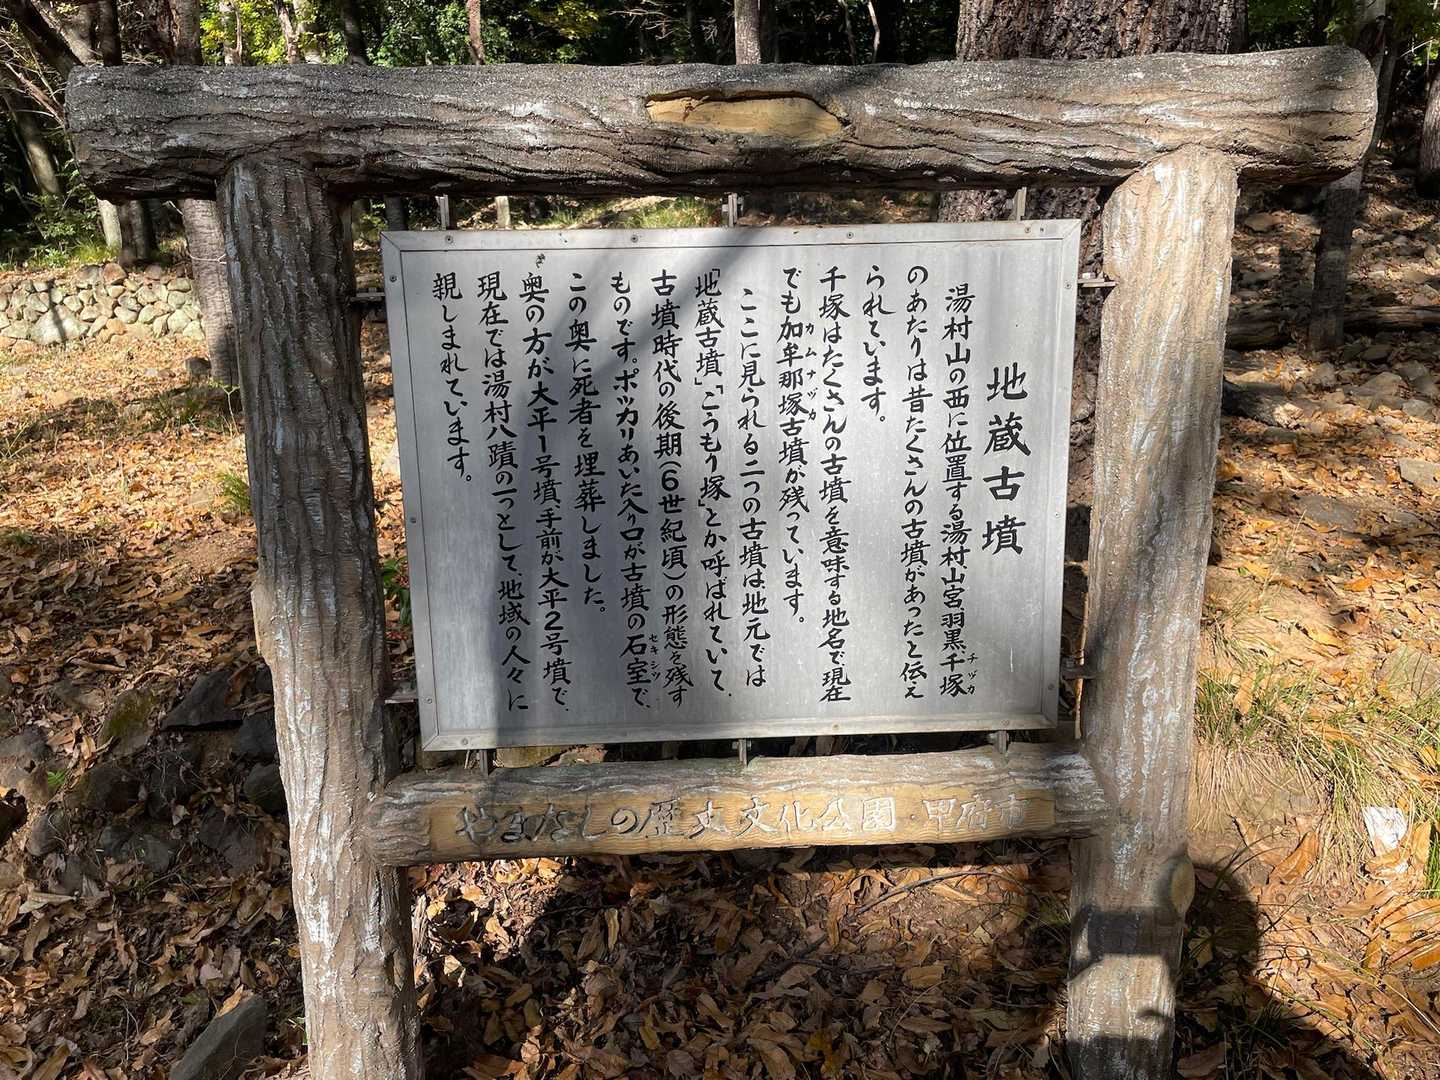 地蔵古墳
湯村山の西に位置する湯村、山宮、羽黒、千塚
チヅカ
のあたりは昔たくさんの古墳があったと伝え
られています。
千塚はたくさんの古墳を意味する地名で現在
でも加牟那塚古墳が残っています。
カムナヅカ
ここに見られる二つの古墳は地元では
「地蔵古墳」「こうもり塚」とか呼ばれていて、
古墳時代の後期(6世紀頃)の形態を残す
ものです。ポッカリあいた入り口が古墳の石室で、
セキシツ
この奥に死者を埋葬しました。
奥の方が大平1号墳、手前が大平2号墳で、
現在では湯村八蹟の一つとして、地域の人々に
親しまれています。
やまなしの歴史文化公園・甲府市